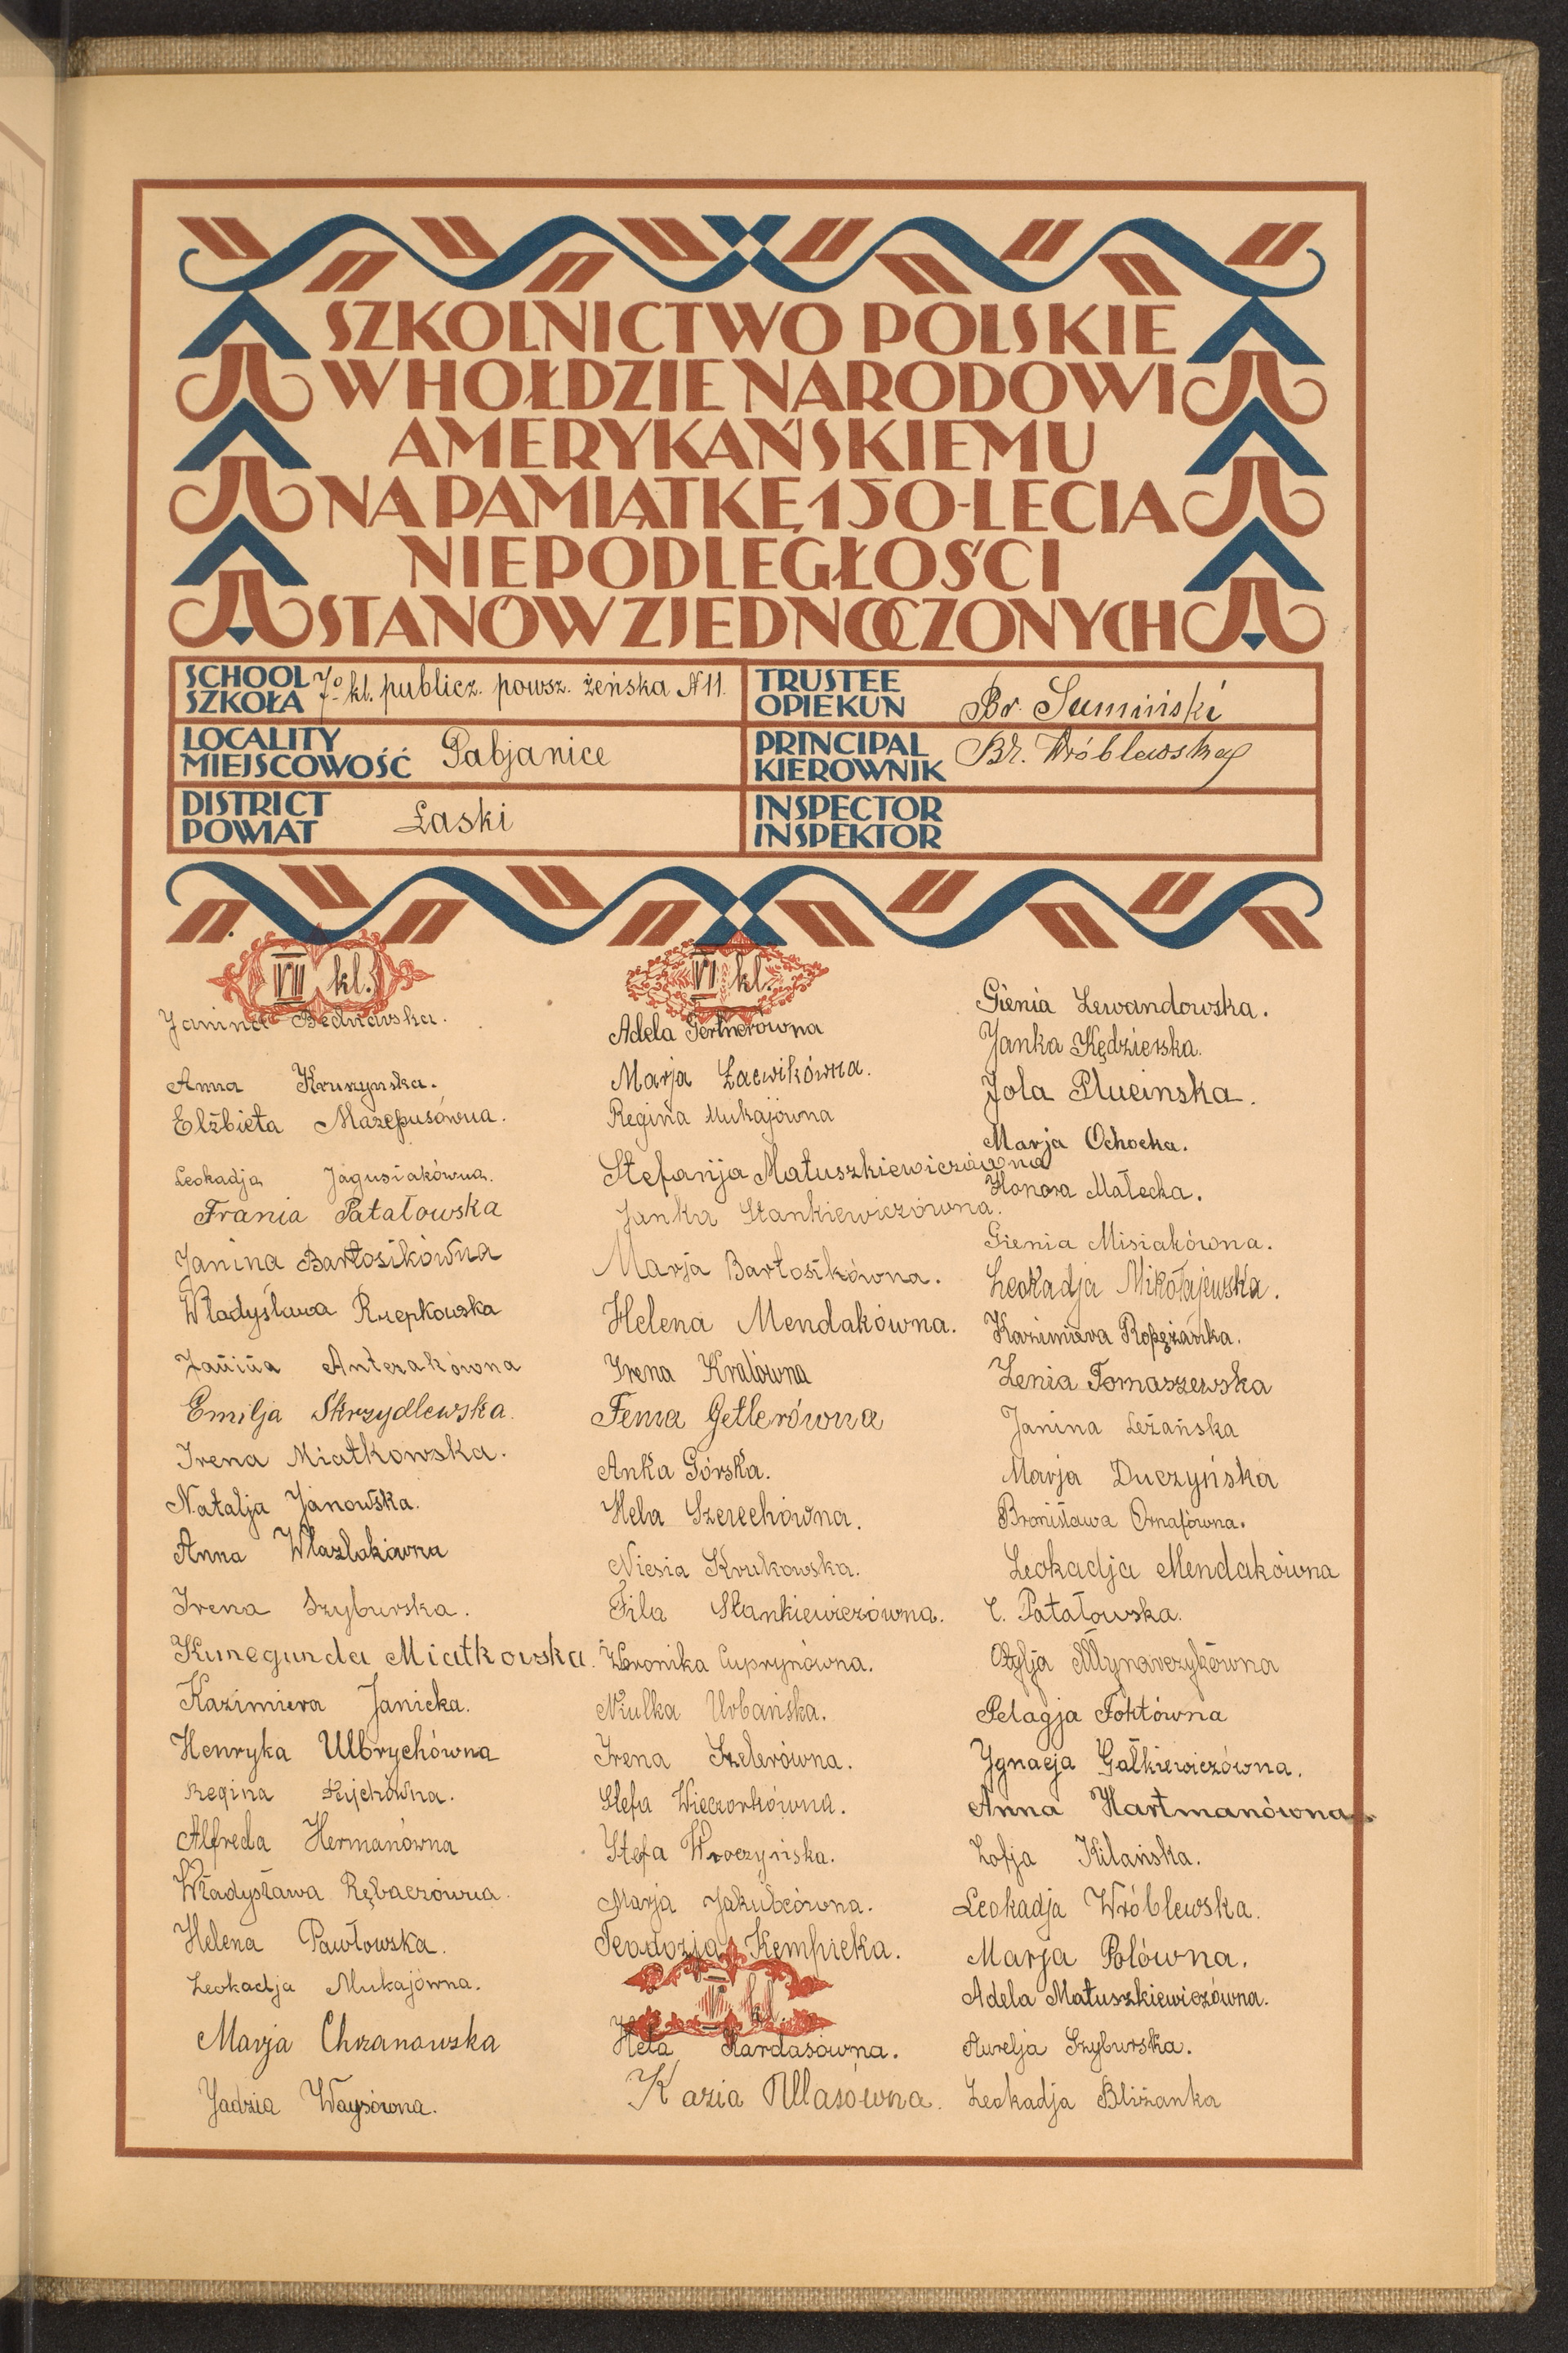 SZKOLNICTWO POLSKIE
W HOŁDZIE NARODOWI
AMERYKAŃSKIEMU
NA PAMIĄTKĘ 150-LECIA
NIEPODLEGŁOŚCI
STANÓW ZJEDNOCZONYCH
SCHOOL
SZKOŁA 7º kl. publicz. powsz. żeńska N 11.
TRUSTEE
OPIEKUN Br. Sumiński
LOCALITY
MIEJSCOWOŚĆ Pabjanice
PRINCIPAL
KIEROWNIK Br. Wróblewska
DISTRICT
POWIAT Łaski
INSPECTOR
INSPEKTOR
VII kl.
Janina Bednarska.
Anna Kruszynska.
Elżbieta Mazepusówna.
Leokadja Jagusiakówna.
Frania Patałowska
Janina Bartosikówna
Władysława Rzepkowska
Janina Antczakówna
Emilja Skrzydlewska.
Irena Miatkowska.
Natalja Janowska.
Anna Wlazlakówna
Irena Szyburska.
Kunegunda Miatkowska.
Kazimiera Janicka.
Henryka Ulbrychówna
Regina
Alfreda Hermanówna
Władysława Rębaczówna.
Helena Pawłowska.
Leokadja Mukajówna.
Marja Chrzanowska
Jadzia Waysówna.
VI kl.
Adela Gertnerówna
Marja Ławikówna.
Regina Mukajówna
Stefanja Matuszkiewiczówna
Janka Stankiewiczówna.
Marja Bartosikówna.
Helena Mendakówna.
Irena Kralówna
Fema Getlerówna
Anka Górska.
Hela Szerechówna.
Niesia Krukowska.
Fila Stankiewiczówna.
Weronika Cuprynówna.
Niulka Urbańska.
Irena Szelerówna.
Stefa Wieczorkówna.
Stefa Wroczyńska.
Marja Jakubcówna.
Teodozja Kempicka.
V kl.
Hela Kardasówna.
Kazia Ullasówna.
Gienia Lewandowska.
Janka Kędzierska.
Jola Plucinska.
Marja Ochocka.
Honora Małecka.
Gienia Misiakówna.
Leokadja Mikołajewska.
Kazimiera Ropężanka.
Zenia Tomaszewska
Janina Leżańska
Marja Duczyńska
Bronisława Ornafówna.
Leokadja Mendakówna
C. Patałowska.
Otylja Młynarczykówna
Pelagja Foktówna
Ygnacja Gałkiewiczówna.
Anna Hartmanówna
Zofja Kilańska.
Leokadja Wróblewska.
Marja Polówna.
Adela Matuszkiewiczówna.
Aurelja Szyburska.
Leokadja Bliżanka